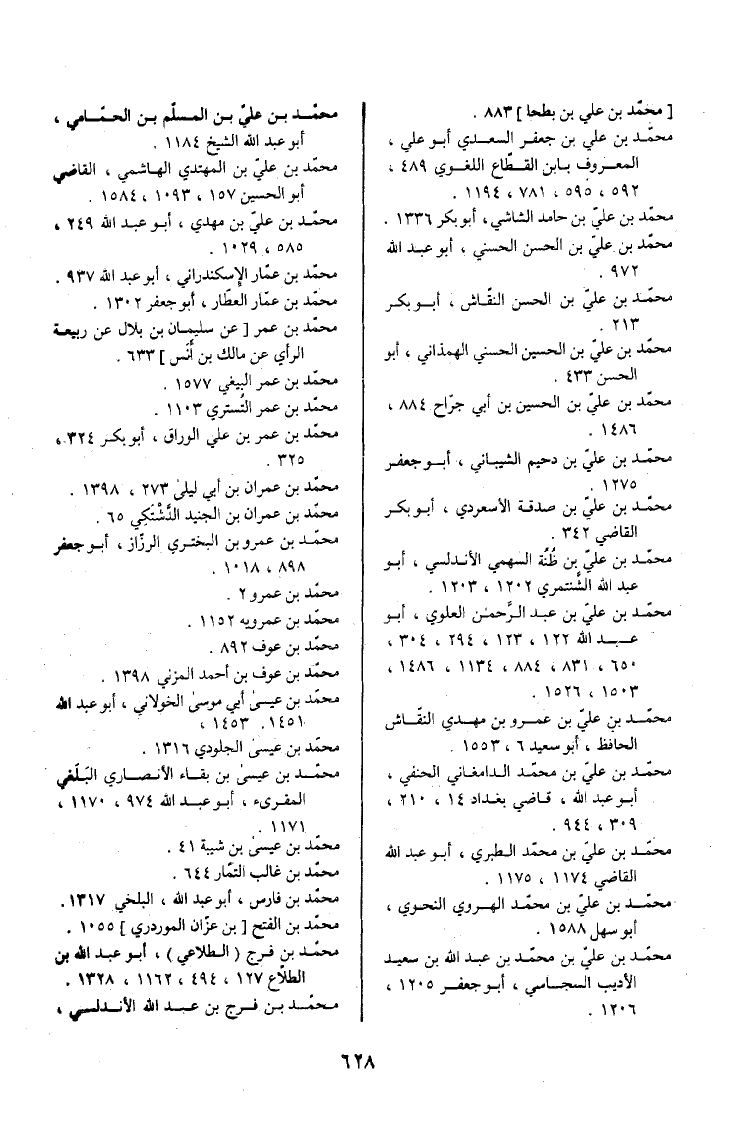 [ محمّد بن علي بن بطحا ] ٨٨٣ .
محمّد بن علي بن جعفر السعدي أبو علي ،
المعروف بـابن القـطّاع اللغـوي ٤٨٩ ،
٥٩٢ ، ٥٩٥ ، ٧٨١ ، ١١٩٤ .
محمّد بن عليّ بن حامد الشاشي، أبو بكر ١٣٣٦ .
محمّد بن عليّ بن الحسن الحسني ، أبو عبد الله
٩٧٢ .
محمّـد بن عليّ بن الحسن النقّـاش ، أبـو بكـر
٢١٣ .
محمّد بن عليّ بن الحسين الحسني الهمذاني ، أبو
الحسن ٤٣٣ .
محمّد بن عليّ بن الحسين بن أبي جرّاح ٨٨٤ ،
١٤٨٦ .
محمّد بن عليّ بن دحيم الشيباني ، أبـو جعفـر
١٢٧٥ .
محمّد بن عليّ بن صدقة الأسعردي ، أبـو بكـر
القاضي ٣٤٢ .
محمّـد بن عليّ بن ظُنّة السهمي الأندلسي ، أبـو
عبد الله الشَّنتمري ١٢٠٢ ، ١٢٠٣ .
محمّد بن عليّ بن عبد الرَّحمٰن العلوي ، أبـو
عـبـد الله ١٢٢ ، ١٢٣ ، ٢٩٤ ، ٣٠٤ ،
٦٥٠ ، ٨٣١ ، ٨٨٤ ، ١١٣٤ ، ١٤٨٦ ،
١٥٠٣ ، ١٥٢٦ .
محمّـد بن عليّ بن عمـرو بن مهـدي النقّـاش
الحافظ ، أبو سعيد ٦ ، ١٥٥٣ .
محمّد بن عليّ بن محمّد الـدامغاني الحنفي ،
أبو عبد الله ، قـاضي بغداد ١٤ ، ٢١٠ ،
٣٠٩ ، ٩٤٤ .
محمّـد بن عليّ بن محمّد الـطبري ، أبـو عبد الله
القاضي ١١٧٤ ، ١١٧٥ .
محمّـد بن عليّ بن محمّـد الهـروي النحوي ،
أبو سهل ١٥٨٨ .
محمّـد بن عليّ بن محمّـد بن عبد الله بن سعيد
الأديب السجـاسي ، أبـو جعفـر ١٢٠٥ ،
١٢٠٦ .
محمّـد بـن عليّ بـن المسلّم بـن الحـمّـامي ،
أبو عبد الله الشيخ ١١٨٤ .
محمّد بن عليّ بن المهتدي الهاشمي ، القاضي
أبو الحسين ١٥٧ ، ١٠٩٣ ، ١٥٨٤ .
محمّـد بن عليّ بن مهدي ، أبـو عبـد الله ٢٤٩ ،
٥٨٥ ، ١٠٢٩ .
محمّد بن عمّار الإسكندراني ، أبو عبد الله ٩٣٧ .
محمّد بن عمّار العطّار ، أبو جعفر ١٣٠٢ .
محمّد بن عمر [ عن سليمان بن بلال عن ربيعة
الرأي عن مالك بن أَنَس ] ٦٣٣ .
محمّد بن عمر البيغي ١٥٧٧ .
محمّد بن عمر التُستري ١١٠٣ .
محمّد بن عمر بن علي الوراق ، أبو بكر ٣٢٤ ،
٣٢٥ .
محمّد بن عمران بن أبي ليلىٰ ٢٧٣ ، ١٣٩٨ .
محمّد بن عمران بن الجنيد الدَّشْتَكي ٦٥ .
محمّـد بن عمرو بن البختري الرزّاز ، أبـو جعفر
٨٩٨ ، ١٠١٨ .
محمّد بن عمرو ٢ .
محمّد بن عمرويه ١١٥٢ .
محمّد بن عوف ٨٩٢ .
محمّد بن عوف بن أحمد المزني ١٣٩٨ .
محمّد بن عيسىٰ أبي موسىٰ الخولاني ، أبو عبد الله
١٤٥١، ١٤٥٣ ،
محمّد بن عيسىٰ الجلودي ١٣١٦ .
محمّـد بن عيسىٰ بن بقـاء الأنـصاري البَـلَغي
المقرىء ، أبـو عبـد الله ٩٧٤ ، ١١٧٠ ،
١١٧١ .
محمّد بن عيسىٰ بن شيبة ٤١ .
محمّد بن غالب التمّار ٦٤٤ .
محمّد بن فارس ، أبو عبد الله ، البلخي ١٣١٧ .
محمّد بن الفتح [ بن عزّان الموردري ] ١٠٥٥ .
محمّـد بن فرج ( الـطلاعي ) ، أبـو عبـد الله بن
الطلّاع ١٢٧ ، ٤٩٤ ، ١١٦٢ ، ١٣٢٨ .
محمّـد بـن فـرج بن عبـد الله الأنـدلسـي ،
٦٢٨